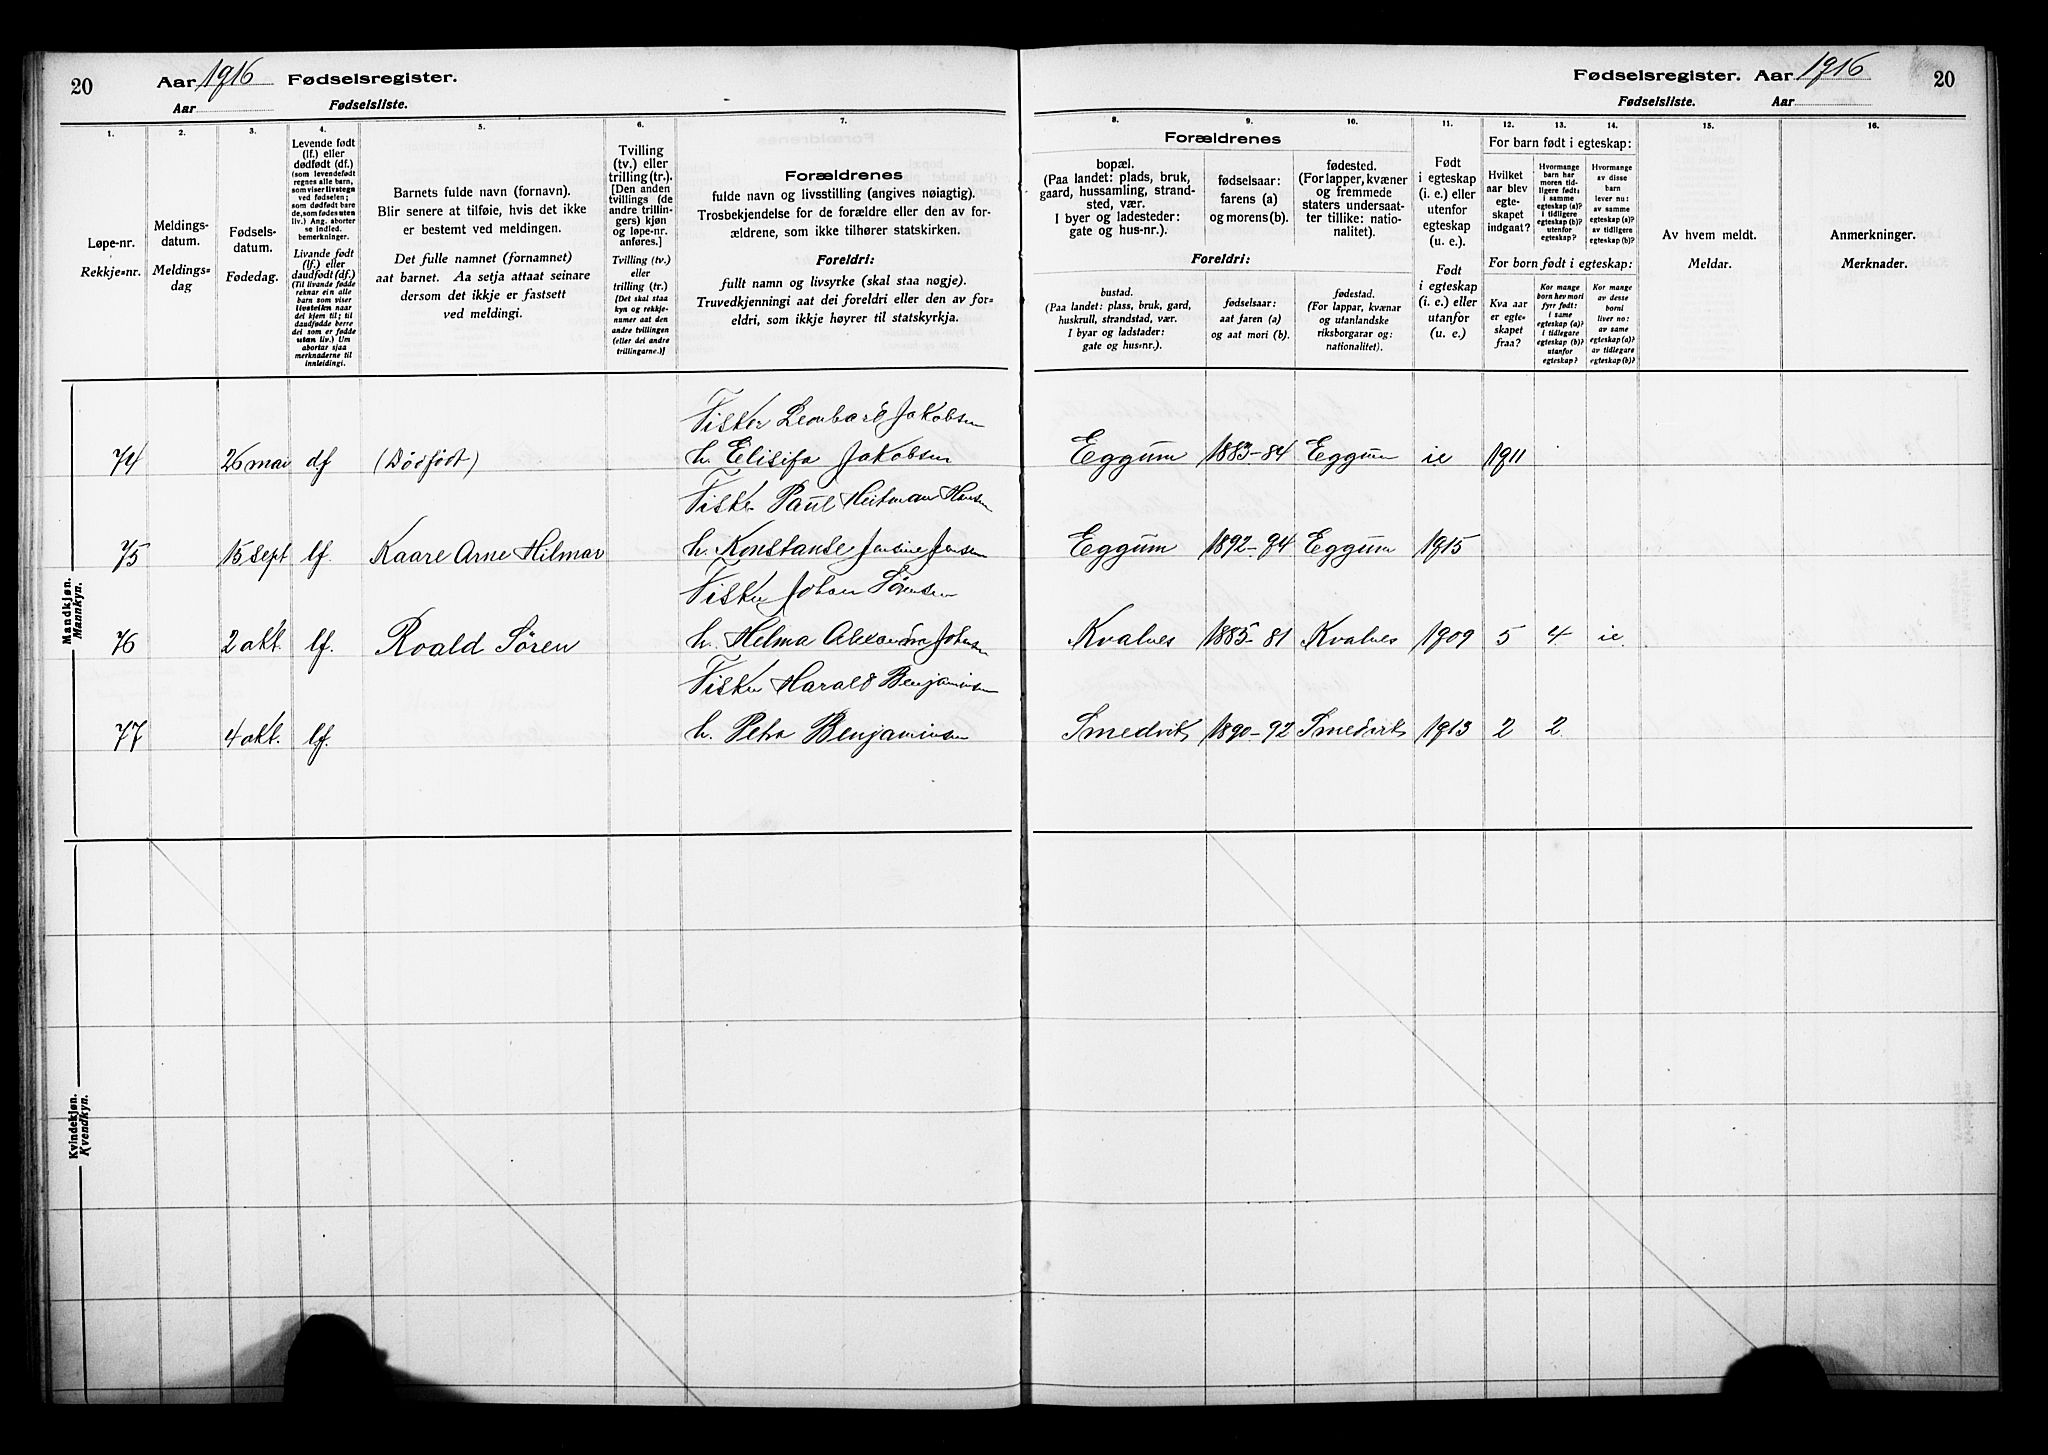 20 Aar 1916 Fødselsregister.
Aar Fødselsliste.
1. 2. 3. 4. 5. 6. 7.
Løpe-nr.
Rekkje-nr.
Meldings-
datum.
Meldings-
dag
Fødsels-
datum.
Fødedag.
Levende født
(lf.) eller
dødfødt (df.)
(som levendefødt
regnes alle barn,
som viser livstegn
ved fødselen;
som dødfødt bare
de, som fødes uten
liv.) Ang. aborter
se indled.
bemerkninger.
Livande født
(lf.) eller
daudfødt (df.)
(Til livande fødde
reknar ein alle
born som viser
livsteikn naar
dei kjem til; til
daudfødde berre
dei som er fødde
utan liv.) Um
abortar sjaa
merknaderne til
innleidingi.
Barnets fulde navn (fornavn).
Blir senere at tilføie, hvis det ikke
er bestemt ved meldingen.
Det fulle namnet (fornamnet)
aat barnet. Aa setja attaat seinare
dersom det ikkje er fastsett
ved meldingi.
Tvilling
(tv.) eller
trilling (tr.).
[Den anden
tvillings (de
andre trillin-
gers) kjøn
og løpe-nr.
anføres.]
Tvilling (tv.)
eller
trilling (tr.)
[Det skal staa
kyn og rekkje-
numer aat den
andre tvillingen
(eller dei andre
trillingarne.)]
Forældrenes
fulde navn og livsstilling (angives nøiagtig).
Trosbekjendelse for de forældre eller den av for-
ældrene, som ikke tilhører statskirken.
Foreldri:
fullt namn og livsyrke (skal staa nøgje).
Truvedkjenningi aat dei foreldri eller den av for-
eldri, som ikkje høyrer til statskyrkja.
Mandkjøn.
Mannkyn.
Fisker Leonhard Jakobsen
74 26 mai df (Dødfødt) h. Elisifa Jakobsen
Fisker Paul Heitman Hansen
75 15 sept lf. Kaare Arne Hilmar h. Konstanse Jensine Jensen
Fisker Johan Sørensen
76 2 okt. lf. Roald Søren h. Helma Alexandra Johnsen
Fisker Harald Benjaminsen
77 4 okt. lf. h. Petra Benjaminsen
Kvindekjøn.
Kvendkyn.
Fødselsregister. Aar 1916 20
Fødselsliste. Aar
8. 9. 10. 11. 12. 13. 14. 15. 16.
Forældrenes
bopæl.
(Paa landet: plads, bruk,
gaard, hussamling, strand-
sted, vær.
I byer og ladesteder:
gate og hus-nr.).
fødselsaar:
farens (a)
og morens (b).
fødested.
(For lapper, kvæner
og fremmede
staters undersaat-
ter tillike: natio-
nalitet).
Foreldri:
bustad.
(Paa landet: plass, bruk, gard,
huskrull, strandstad, vær.
I byar og ladstader:
gate og hus-nr.).
fødselsaar:
aat faren (a)
og aat mori (b).
fødestad.
(For lappar, kvænar
og utanlandske
riksborgarar og:
nationalitet).
Født
i egteskap
(i. e.) eller
utenfor
egteskap
(u. e.).
Født
i egteskap
(i. e.) eller
utanfor
(u. e.)
For barn født i egteskap:
Hvilket
aar blev
egte-
skapet
indgaat?
Hvormange
barn har
moren tid-
ligere født:
i samme
egteskap (a)?
i tidligere
egteskap (b)?
utenfor
egteskap?
Hvormange
av disse
barn
lever nu:
av samme
egteskap (a)?
av tidligere
egteskap (b)?
For born født i egteskap:
Kva aar
er egte-
skapet
fraa?
Kor mange
born hev mori
fyrr født:
i same
egteskap (a)?
i tidlegare
egteskap (b)?
utanfor
egteskap?
Kor mange
av desse
borni
liver no:
av same
egteskap (a)?
av tidlegare
egteskap (b)?
Av hvem meldt.
Meldar.
Anmerkninger.
Merknader.
Eggum 1883-84 Eggum ie 1911
Eggum 1892-94 Eggum 1915
Kvalnes 1885-81 Kvalnes 1909 5 4 ie
Smedvik 1890-92 Smedvik 1913 2 2